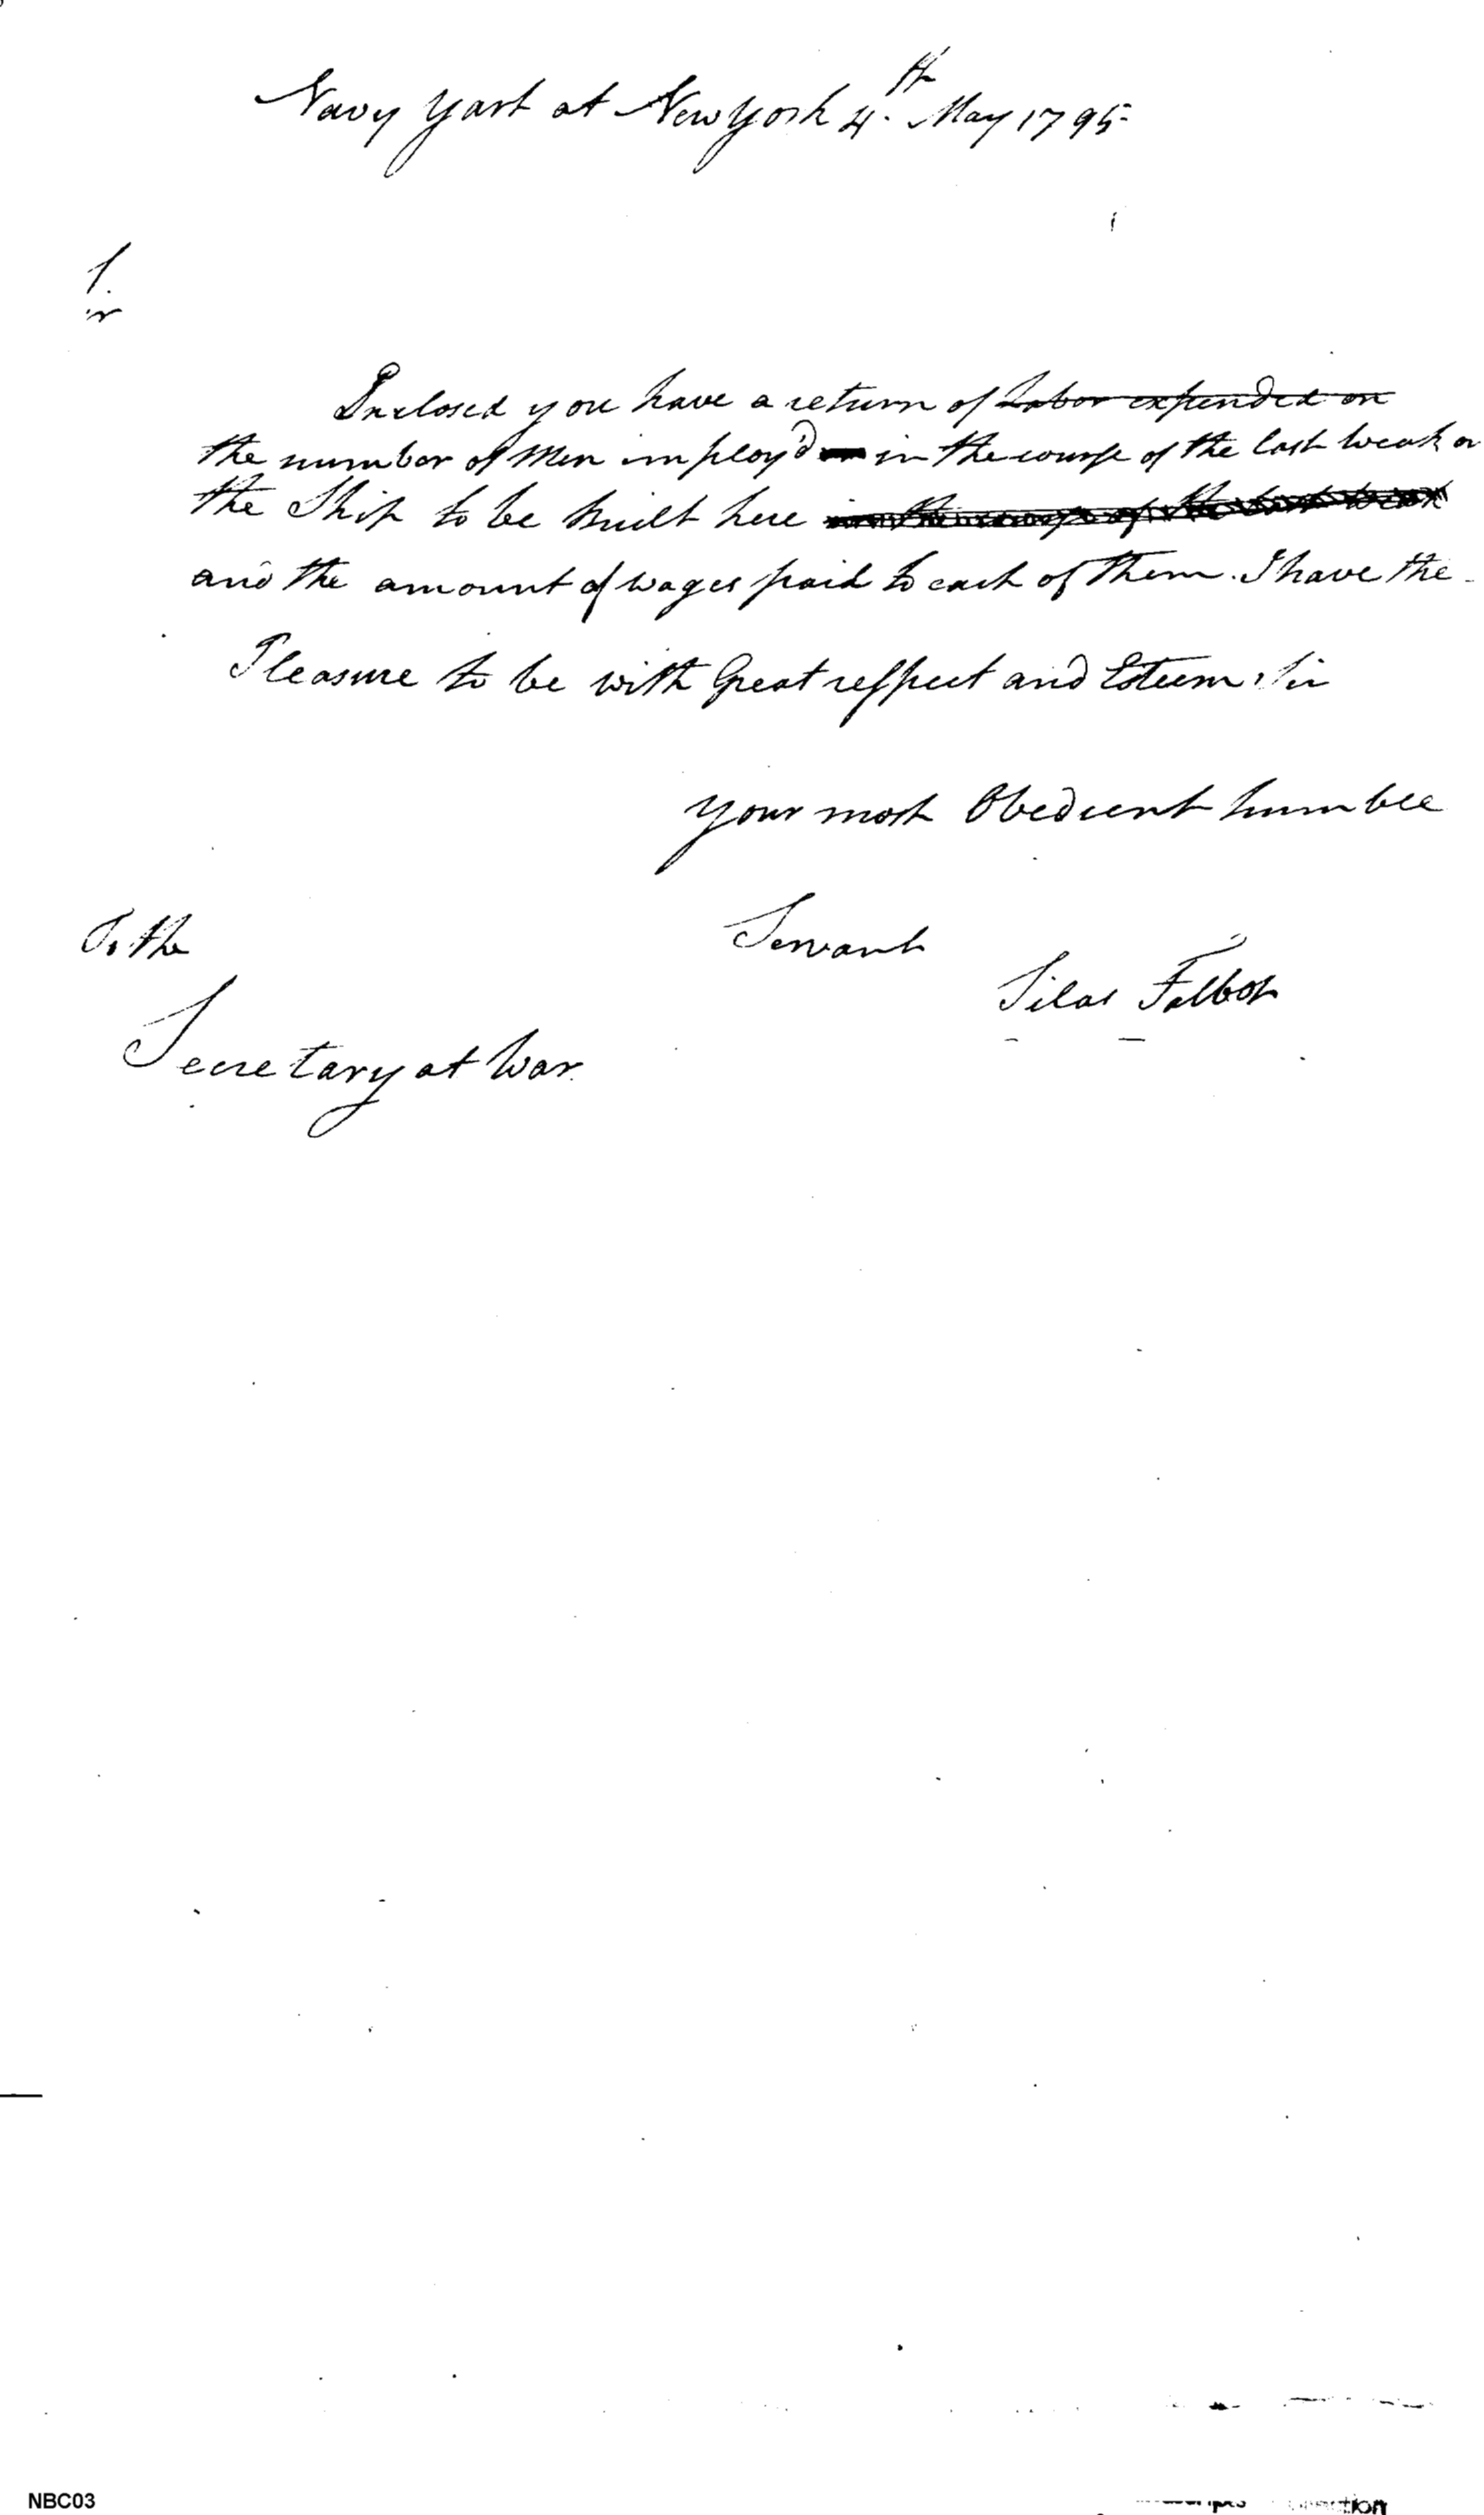 Navy Yart at New York 4th. May 1795
Sir
Inclosed you have a return of Labor expended on
the number of Men imploy'd in the course of the last weak
the Ship to be built here in the course of the last weak
and the amount of wages paid to each of them. I have the
Pleasure to be with Great respect and Esteem, Sir
your most Obedient humble
Servant
Silas Talbot
To the
Secretary at War
NBC03